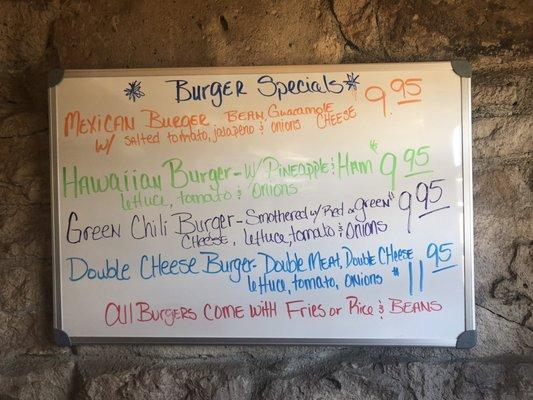 * Burger Specials *
Mexican Burger Bean, Guacamole Cheese 9.95
w/ salted tomato, jalapeno & onions
Hawaiian Burger - w/ Pineapple & Ham $9.95
lettuce, tomato & onions
Green Chili Burger - Smothered w/ Red or Green $9.95
Cheese, lettuce, tomato & onions
Double Cheese Burger - Double Meat, Double Cheese $11.95
lettuce, tomato, onions
All Burgers come with Fries or Rice & Beans